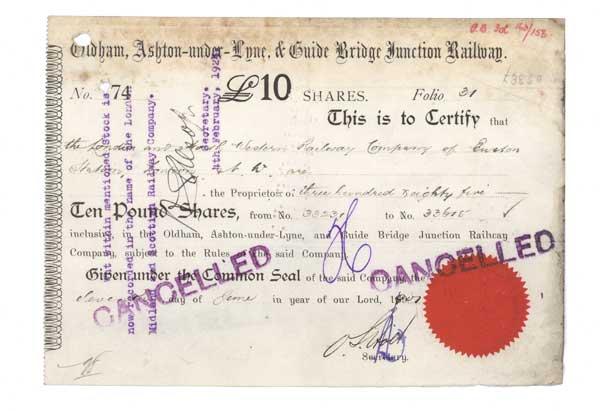 Oldham, Ashton-under-Lyne, & Guide Bridge Junction Railway.
No. 74 £10 SHARES. Folio 31
This is to Certify that
the London and North Western Railway Company of Euston
Station are
the Proprietor of three hundred & eighty five
Ten Pound Shares, from No. to No.
inclusive, in the Oldham, Ashton-under-Lyne, and Guide Bridge Junction Railway
Company, subject to the Rules of the said Company.
Given under the Common Seal of the said Company, the
day of June in year of our Lord,
Secretary.
CANCELLED
CANCELLED
within mentioned Stock is
now recorded in the name of the London
Midland and Scottish Railway Company.
Secretary.
4th February,